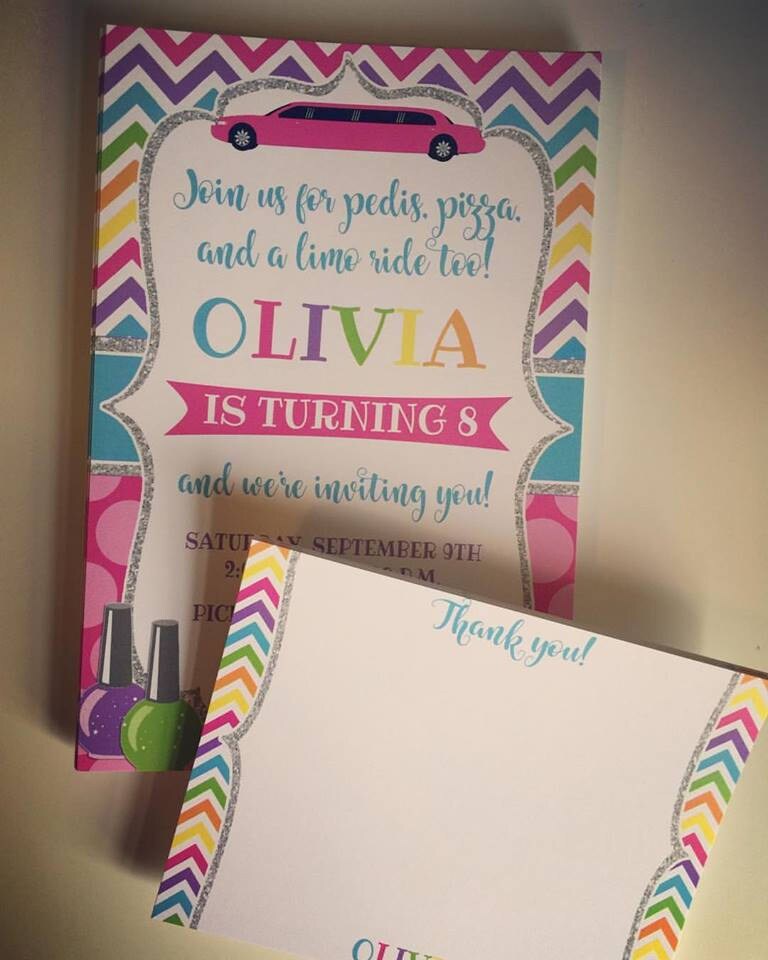 Join us for pedis, pizza,
and a limo ride too!
OLIVIA
IS TURNING 8
and we're inviting you!
SATURDAY, SEPTEMBER 9TH
P.M.
Thank you!